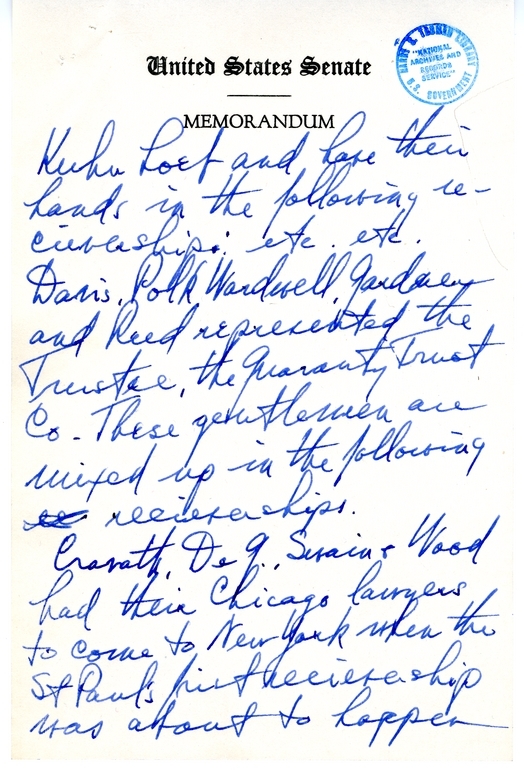 United States Senate
MEMORANDUM
HARRY S. TRUMAN LIBRARY
"NATIONAL
ARCHIVES AND
RECORDS
SERVICE"
U.S. GOVERNMENT
Kuhn Loeb and have their
hands in the following re-
cieverships: etc. etc.
Davis, Polk Wardwell, Gardner
and Reed represented the
Trustee, the Guaranty Trust
Co. These gentlemen are
mixed up in the following
recieverships.
Cravath, De G., Swain & Wood
had their Chicago lawyers
to come to New York when the
St Paul's first recievership
was about to happen